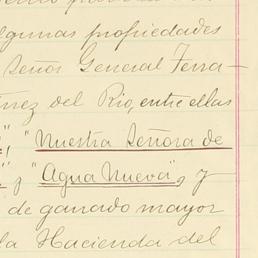 algunas propiedades
Señor General Terra-
del Rio, entre ellas
", "Nuestra Señora de
" y "Agua Nueva", y
de ganado mayor
la Hacienda del